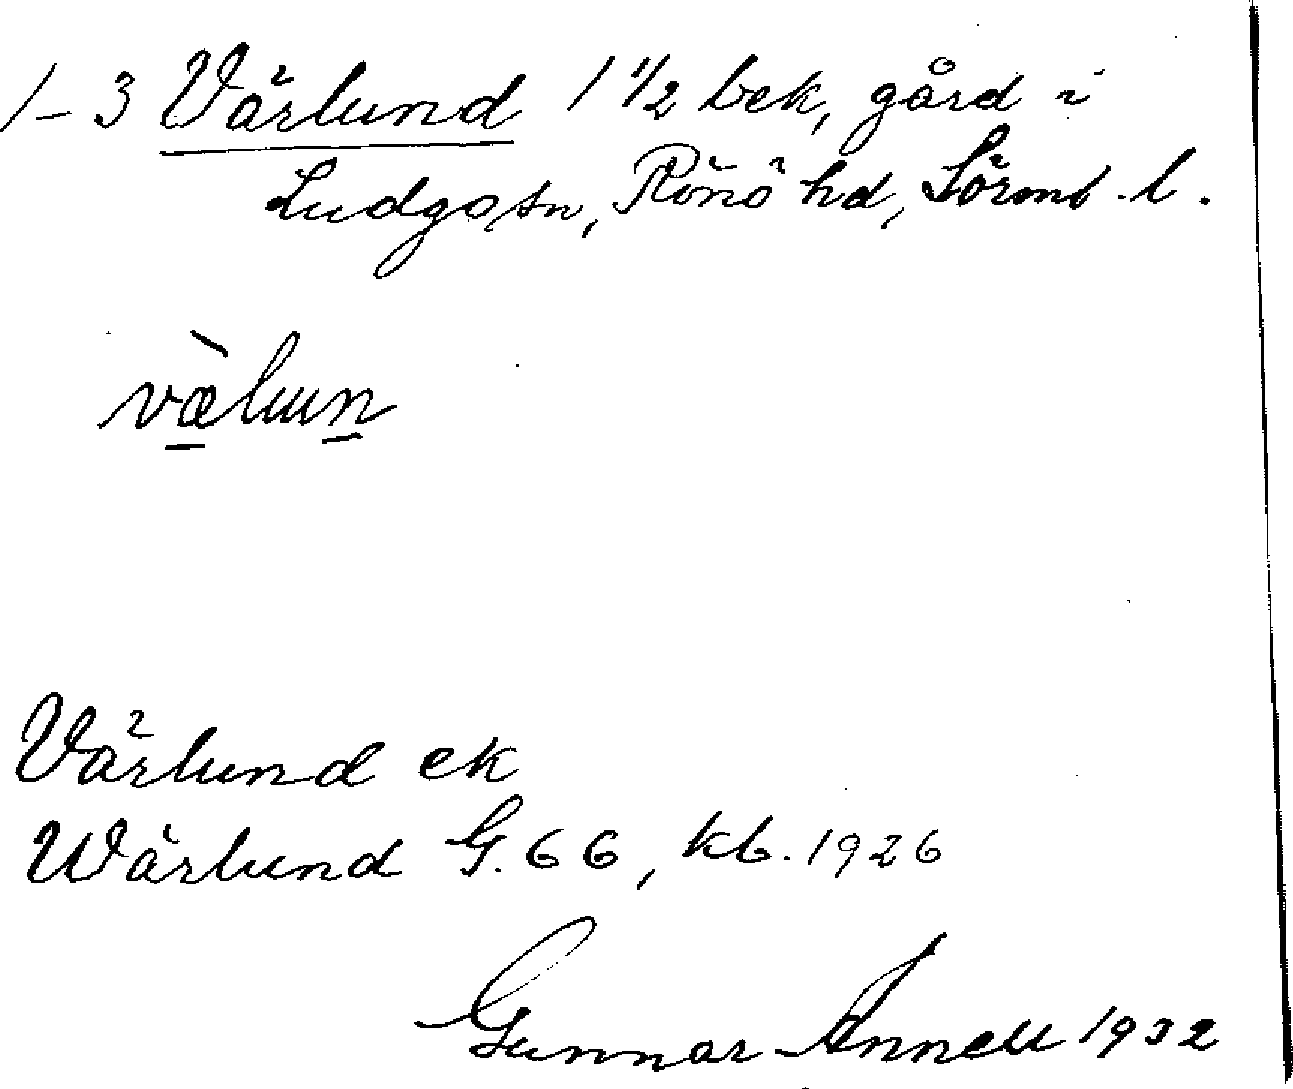 1-3 Värlund 1 1/2 bek, gård i
Ludgo sn, Rönö hd, Sörml. l.
væ̀lun
Värlund ek
Wärlund G. 66, kb. 1926
Gunnar Annell 1932